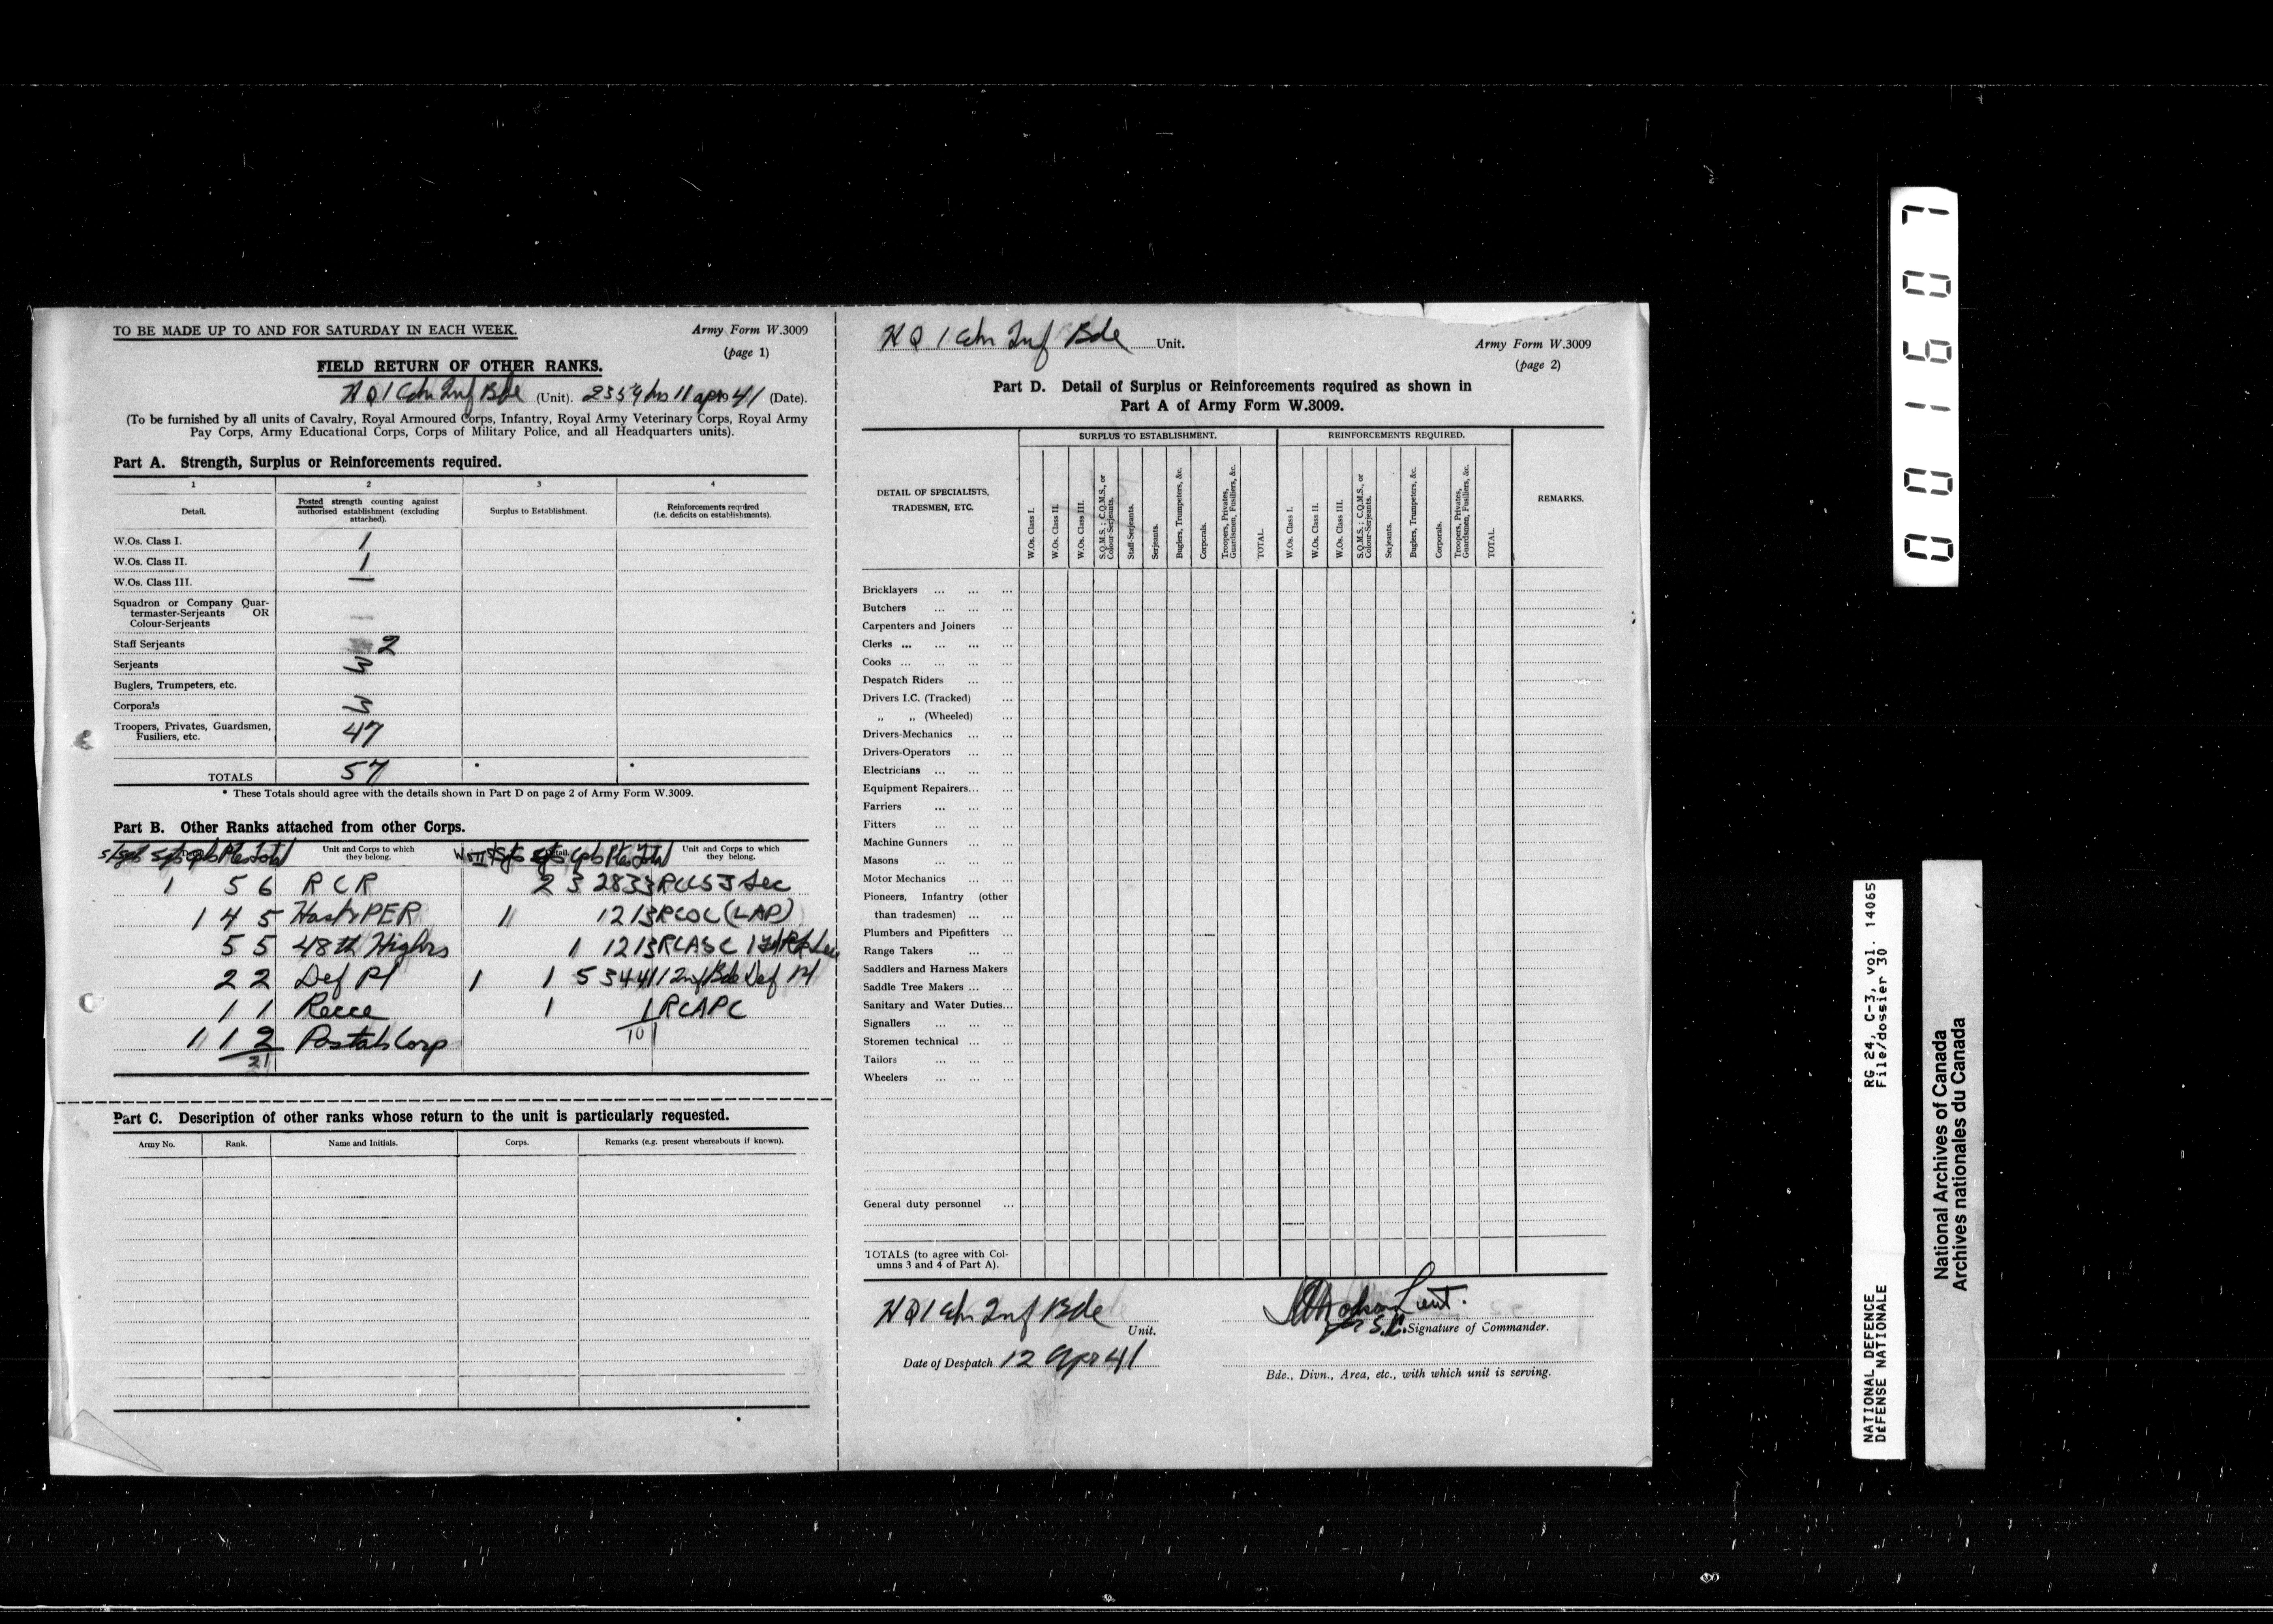 TO BE MADE UP TO AND FOR SATURDAY IN EACH WEEK.
Army Form W.3009
(page 1)
FIELD RETURN OF OTHER RANKS.
H Q 1 Cdn Inf Bde (Unit). 2359 hrs 11 Apr 1941 (Date).
(To be furnished by all units of Cavalry, Royal Armoured Corps, Infantry, Royal Army Veterinary Corps, Royal Army
Pay Corps, Army Educational Corps, Corps of Military Police, and all Headquarters units).
Part A. Strength, Surplus or Reinforcements required.
1 2 3 4
Detail.
Posted strength counting against authorised establishment (excluding attached).
Surplus to Establishment.
Reinforcements required (i.e. deficits on establishments).
W.Os. Class I. 1
W.Os. Class II. 1
W.Os. Class III. —
Squadron or Company Quar-
termaster-Serjeants OR
Colour-Serjeants —
Staff Serjeants 2
Serjeants 3
Buglers, Trumpeters, etc.
Corporals 3
Troopers, Privates, Guardsmen,
Fusiliers, etc. 47
TOTALS 57 * *
* These Totals should agree with the details shown in Part D on page 2 of Army Form W.3009.
Part B. Other Ranks attached from other Corps.
S/Sgts Sgts Cpls Ptes Total
Unit and Corps to which they belong.
WOIII S/Sgts Sgts Cpls Ptes Total
Unit and Corps to which they belong.
1 5 6 R C R
1 4 5 Hast & PER
5 5 48th Highrs
2 2 Def Pl
1 1 Recce
1 1 2 Postal Corp
21
2 3 28 33 RCCS J Sec
1 12 13 RCOC (LAD)
1 12 13 RCASC
1 1 5 34 41 1 Inf Bde Def Pl
1 1 RCAPC
101
Part C. Description of other ranks whose return to the unit is particularly requested.
Army No. Rank. Name and Initials. Corps. Remarks (e.g. present whereabouts if known).
H Q 1 Cdn Inf Bde Unit.
Army Form W.3009
(page 2)
Part D. Detail of Surplus or Reinforcements required as shown in
Part A of Army Form W.3009.
DETAIL OF SPECIALISTS,
TRADESMEN, ETC.
SURPLUS TO ESTABLISHMENT.
W.Os. Class I.
W.Os. Class II.
W.Os. Class III.
S.Q.M.S.; C.Q.M.S., or Colour-Serjeants.
Staff-Serjeants.
Serjeants.
Buglers, Trumpeters, &c.
Corporals.
Troopers, Privates, Guardsmen, Fusiliers, &c.
TOTAL.
REINFORCEMENTS REQUIRED.
W.Os. Class I.
W.Os. Class II.
W.Os. Class III.
S.Q.M.S.; C.Q.M.S., or Colour-Serjeants.
Serjeants.
Buglers, Trumpeters, &c.
Corporals.
Troopers, Privates, Guardsmen, Fusiliers, &c.
TOTAL.
REMARKS.
Bricklayers ... ... ...
Butchers ... ... ...
Carpenters and Joiners ...
Clerks ... ... ... ...
Cooks ... ... ... ...
Despatch Riders ... ...
Drivers I.C. (Tracked) ...
„ „ (Wheeled) ...
Drivers-Mechanics ... ...
Drivers-Operators ... ...
Electricians ... ... ...
Equipment Repairers... ...
Farriers ... ... ...
Fitters ... ... ...
Machine Gunners ... ...
Masons ... ... ...
Motor Mechanics ... ...
Pioneers, Infantry (other
than tradesmen) ... ...
Plumbers and Pipefitters ...
Range Takers ... ...
Saddlers and Harness Makers
Saddle Tree Makers ... ...
Sanitary and Water Duties...
Signallers ... ... ...
Storemen technical ... ...
Tailors ... ... ...
Wheelers ... ... ...
General duty personnel ...
TOTALS (to agree with Col-
umns 3 and 4 of Part A).
H Q 1 Cdn Inf Bde
Unit.
Date of Despatch 12 Apr 41
Lieut.
for S.C. Signature of Commander.
Bde., Divn., Area, etc., with which unit is serving.
001607
NATIONAL DEFENCE RG 24, C-3, vol. 14065
DÉFENSE NATIONALE File/dossier 30
National Archives of Canada
Archives nationales du Canada